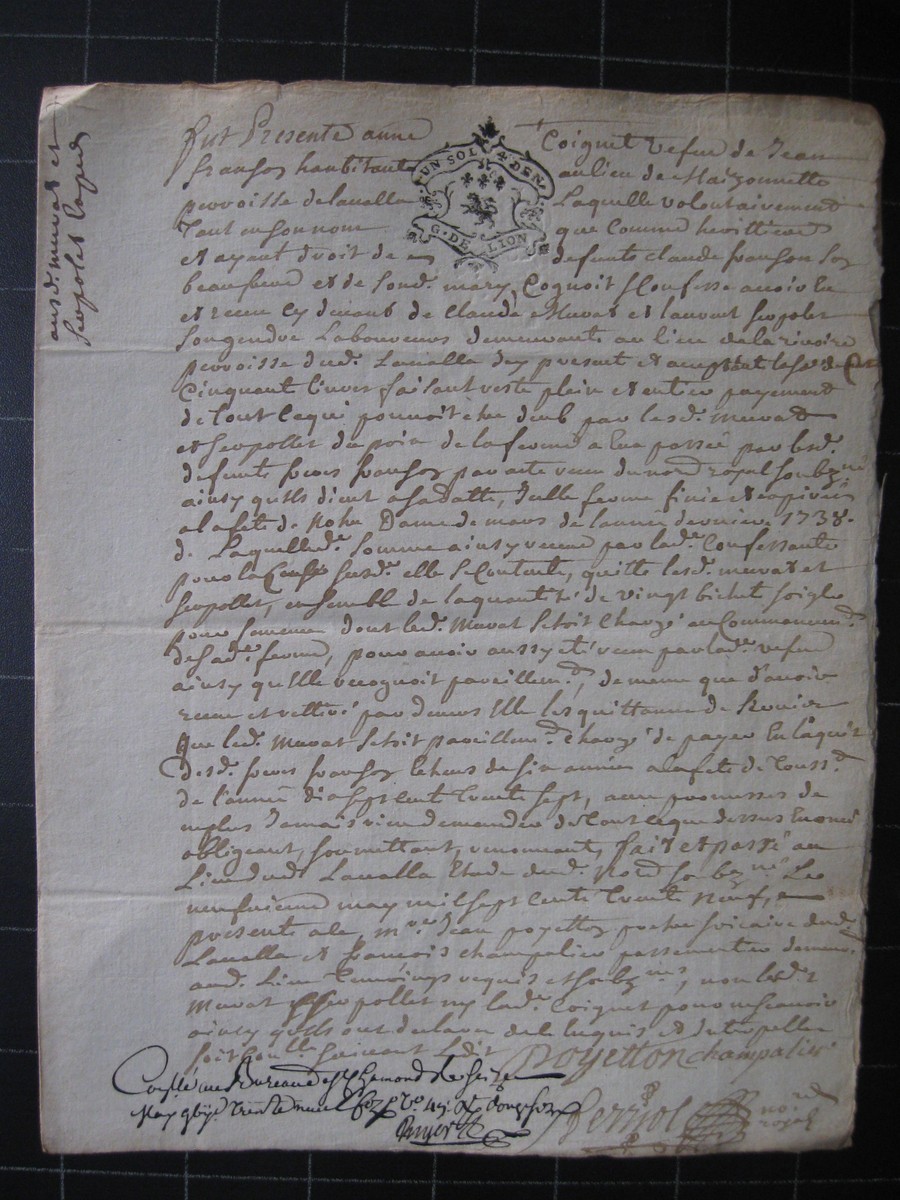 aux d. murat et
serpolet Copie
fut Presente anne Coignet vefue de Jean
fransoz habitante au lieu de Maizonnette
parroisse de lavalla Laquelle volontairement
Tant en son nom que Comme herittiere
et ayant droit de defunts claude fransoz Son
beaufrere et de sond. mary, Cognoit & Confesse avoir Eu
et receu Cy devant de Claude Murat et laurent serpolet
Songendre Laboureurs demeurants au lieu de la rivoire
parroisse dud. Lavalla Icy present et acceptant la so.e de
Cinquant livres faisant reste plein et entier payement
de tout Ce qui pouvoit être deub par lesd. murat
et serpollet du prix de la ferme a Eux passée par lesd.
defunts freres fransoz par acte receu du no.re royal soubz.né
ainsy qu'ils dient a sa datte, Icelle ferme finie et expirée
a la fete de Notre Dame de mars de l'année derniere 1738.
de Laquelle d.e somme ainsy receue par lad.e Confessante
pour la Cause susd. elle se Contente, quitte lesd. murat et
serpollet, ensemble de la quantité de vingt bichet soigle
pour semence dont led. Murat setoit Chargé au Commencem.t
de sad.e ferme, pour avoir aussy eté receu par lad.e vefue
ainsy qu'elle recognoit pareillem.t, de meme que d'avoir
receu et rettiré par devers Elle les quittances de
que led. Murat setoit pareillem.t Chargé de payer En l'aquit
desd. freres fransoz de six années a la fete de Touss.t
de l'année dix sept cent trente sept, avec promesses de
n'plus Jamais rien demander de tout ce que dessus Enoncé
obligeant, soumettant, renonçant, fait et passé au
Lieu dud. Lavalla Etude dud. No.re soubz.né Le
neufvieme may mil sept cents Trente neuf, en
presence de m.re Jean poyetton pretre vicaire dud.
Lavalla et françois champalier passementier demeur.t
aud. Lieu Temoings requis et soubz.nes, non lesd.
Murat & serpollet ny lad.e Coignet pour ne sçavoir
ainsy qu'ils ont declaré de L'enquis et Interpellés
soit Coul.le suivant L'edit Poyetton champalier
Conllé au Bureau de St Chamond le seize
May 1739 trente neuf douze sols
Berriol no.re royal
UN SOL 4 DEN.
G. DE LION